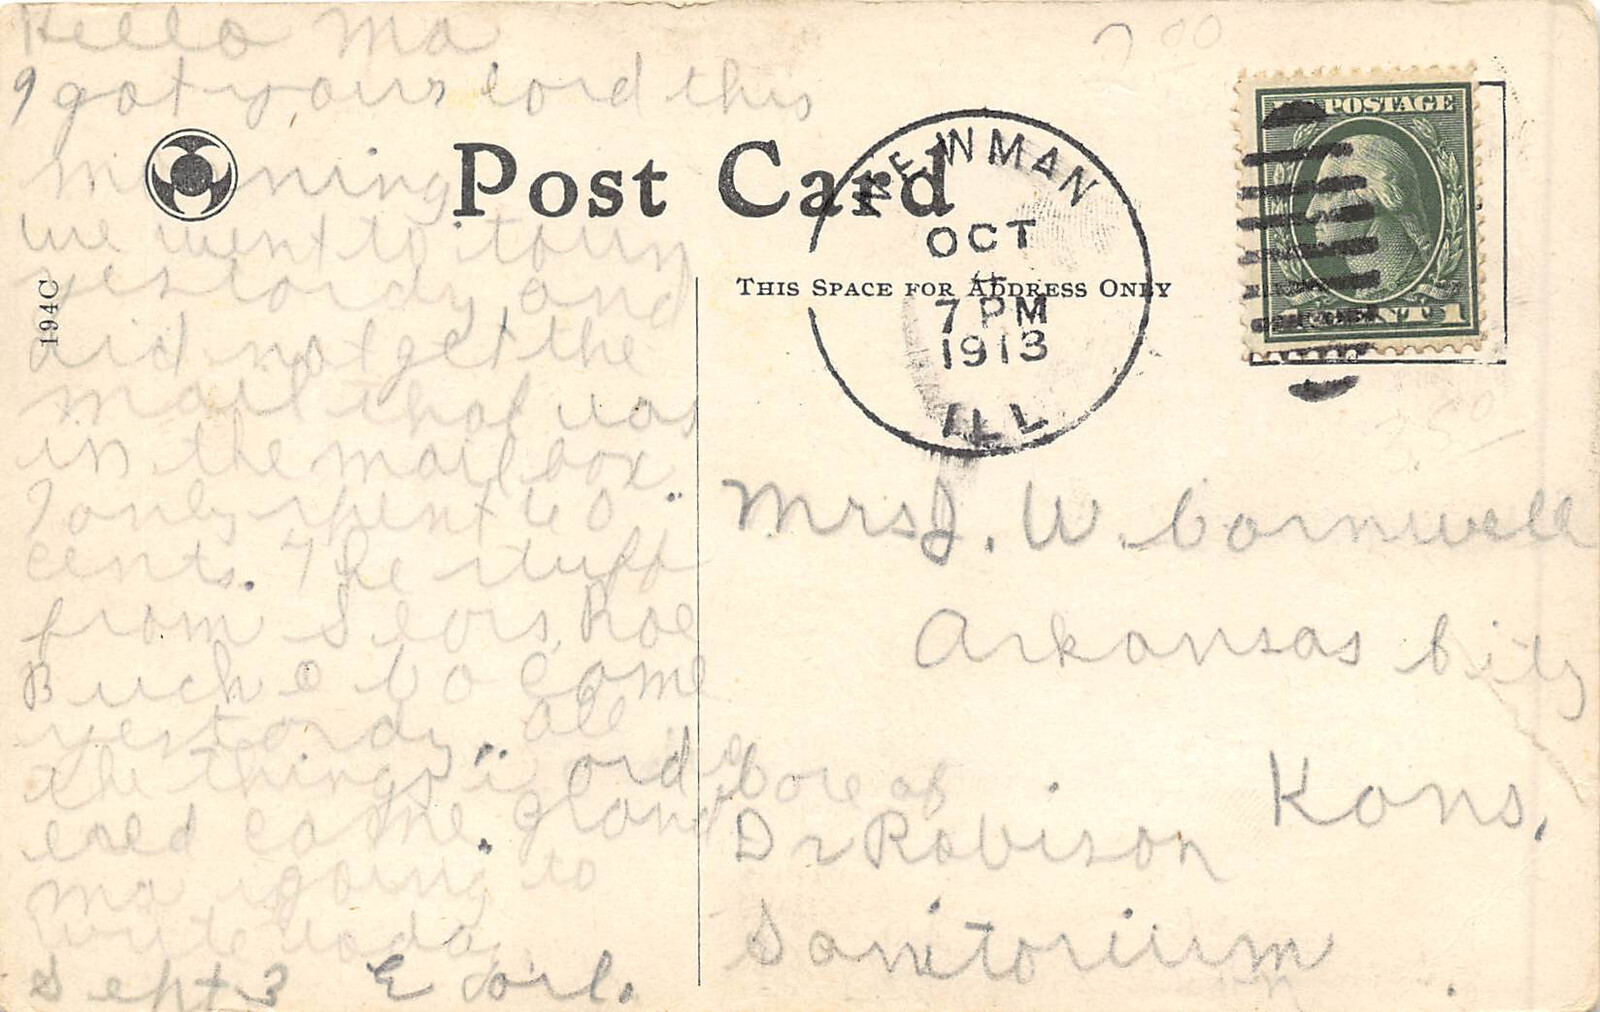 Hello Ma
I got your card this
morning
we went to town
yestordy and
did not get the
mail that was
in the mail box
I only spent 60
cents. The stuff
from Sears, Roe
Buck & Co came
yestordy. all
the things i ord
ered came. grand
ma i going to
write today
Sept 3 Earl.
194C
Post Card
THIS SPACE FOR ADDRESS ONLY
NEWMAN
OCT
7 PM
1913
ILL
POSTAGE
1 CENT 1
200
250
Mrs J. W. Cornwell
Arkansas City
Kans,
Care of
Dr Robison
Sanitorium